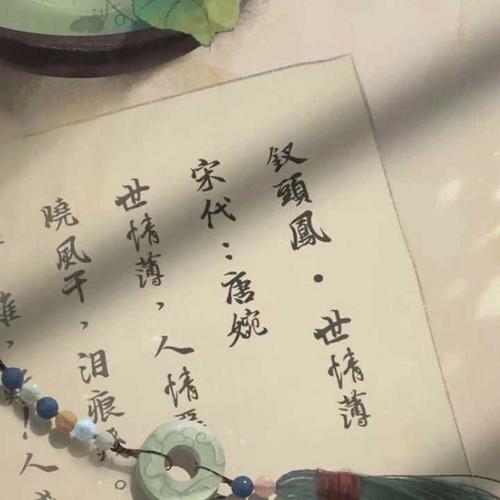 釵頭鳳·世情薄
宋代：唐婉
世情薄，人情
曉風干，泪痕
難，
！人